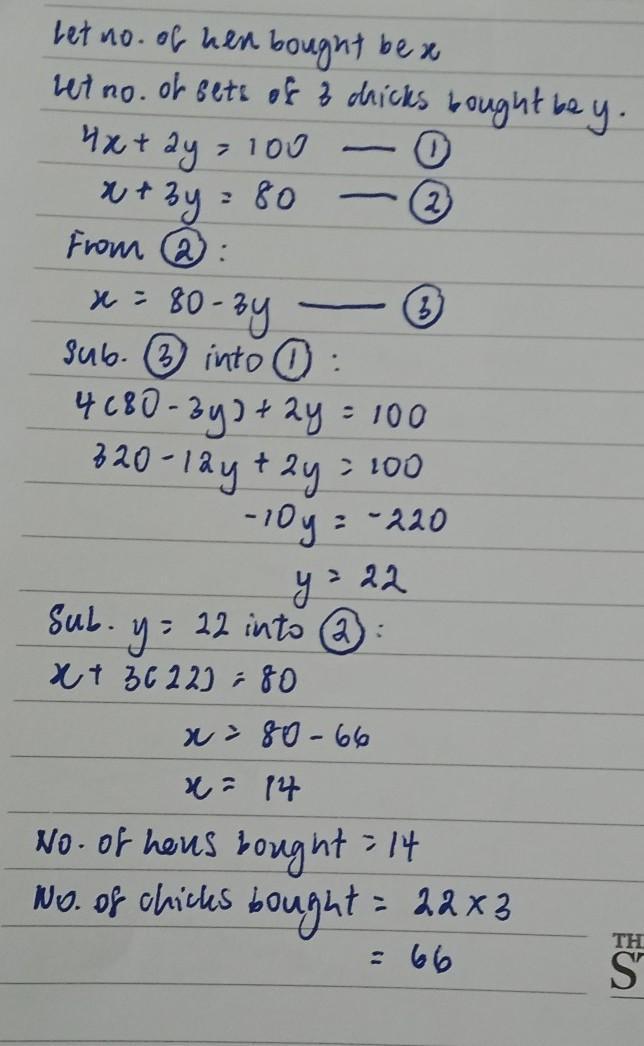 Let no. of hen bought be x
Let no. of sets of 3 chicks bought be y.
4x + 2y = 100 — ①
x + 3y = 80 — ②
From ② :
x = 80 - 3y — ③
Sub. ③ into ① :
4(80 - 3y) + 2y = 100
320 - 12y + 2y = 100
-10y = -220
y = 22
Sub. y = 22 into ② :
x + 3(22) = 80
x = 80 - 66
x = 14
No. of hens bought = 14
No. of chicks bought = 22 x 3
= 66
TH
ST